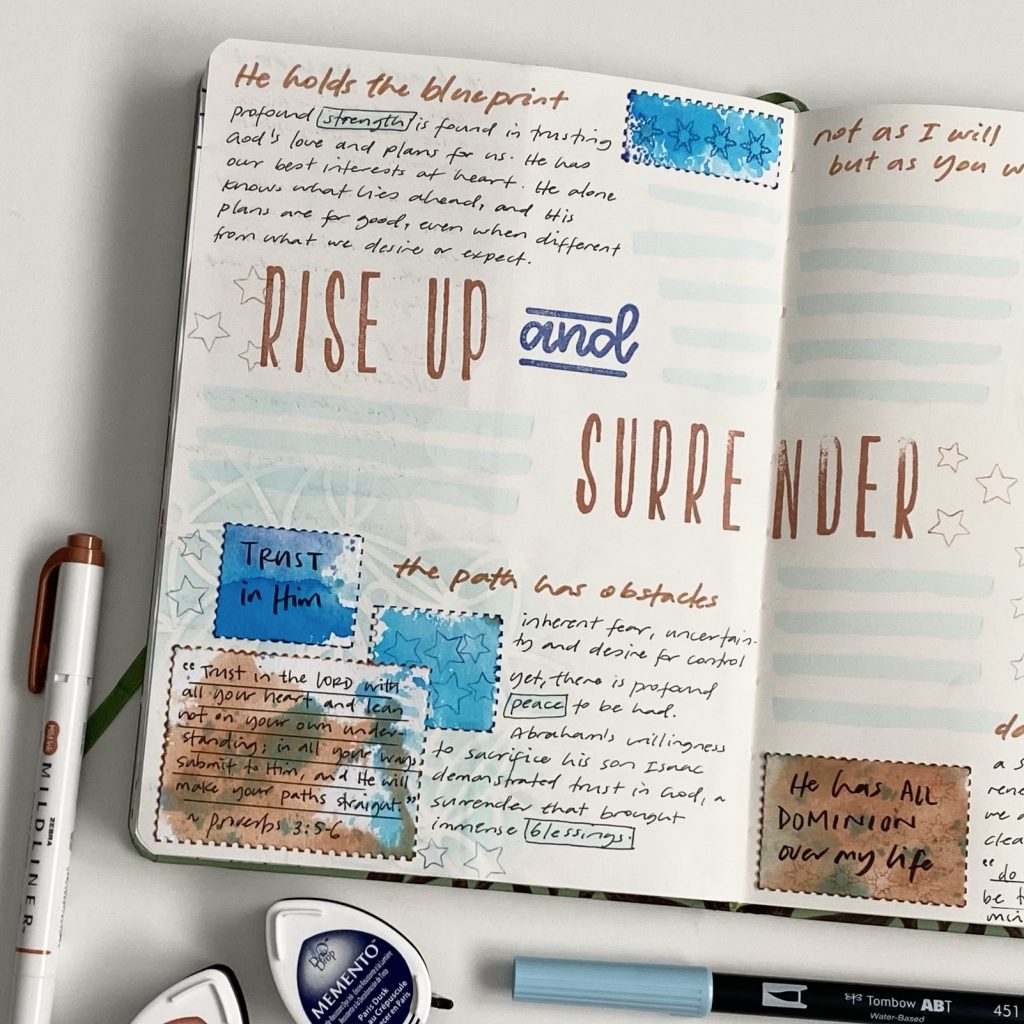 He holds the blueprint
profound strength is found in trusting
God's love and plans for us. He has
our best interests at heart. He alone
knows what lies ahead, and His
plans are for good, even when different
from what we desire or expect.
RISE UP and
SURRENDER
TRUST
in Him
the path has obstacles
inherent fear, uncertain-
ty and desire for control
yet, there is profound
peace to be had.
Abraham's willingness
to sacrifice his son Isaac
demonstrated trust in God, a
surrender that brought
immense blessings.
"Trust in the LORD with
all your heart and lean
not on your own under-
standing; in all your ways
submit to Him, and He will
make your paths straight."
~ Proverbs 3:5-6
not as I will
but as you
He has ALL
DOMINION
over my life
do
a s
rene
we a
clea
"do
be t
min
ZEBRA
MILDLINER
Dew Drop
MEMENTO
Paris Dusk
au Crépuscule
Tombow ABT
Water-Based
451